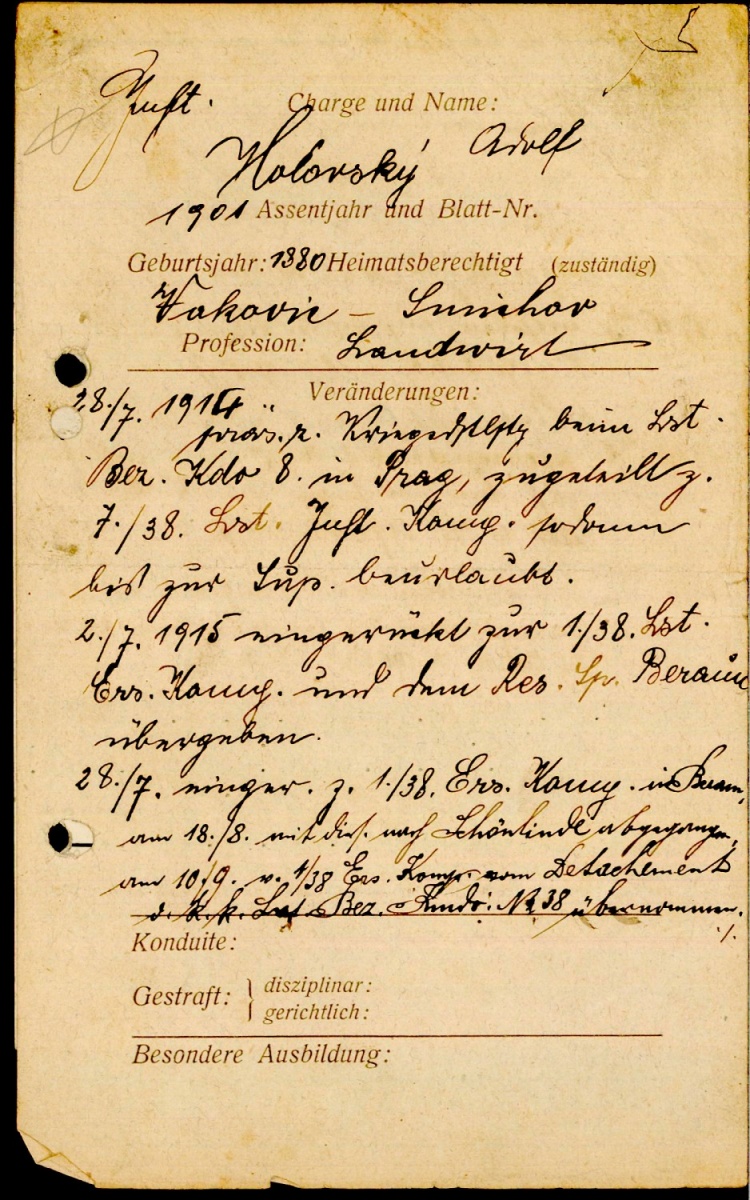 Inft. Charge und Name:
Holovský Adolf
1901 Assentjahr und Blatt-Nr.
Geburtsjahr: 1880 Heimatsberechtigt (zuständig)
Vakovic – Smichov
Profession: Landwirt
Veränderungen:
28./7. 1914
präs. z. Kriegsdstlstg beim Lst.
Bez. Kdo 8. in Prag, zugeteilt z.
7./38. Lst. Inft. Komp. sodann
bis zur Sup. beurlaubt.
2./7. 1915 eingerückt zur 1./38. Lst.
Ers. Komp. und dem Res. Sp. Beraun
übergeben.
28./7. einger. z. 1./38. Ers. Komp. in Beraun,
am 18./8. mit ders. nach Schönlinde abgegangen,
am 10./9. v. 4/38 Ers. Komp. vom Detachement
d. k. k. Lst Bez. Kmdo: No 38 übernommen.
./.
Konduite:
Gestraft: } disziplinar:
gerichtlich:
Besondere Ausbildung: